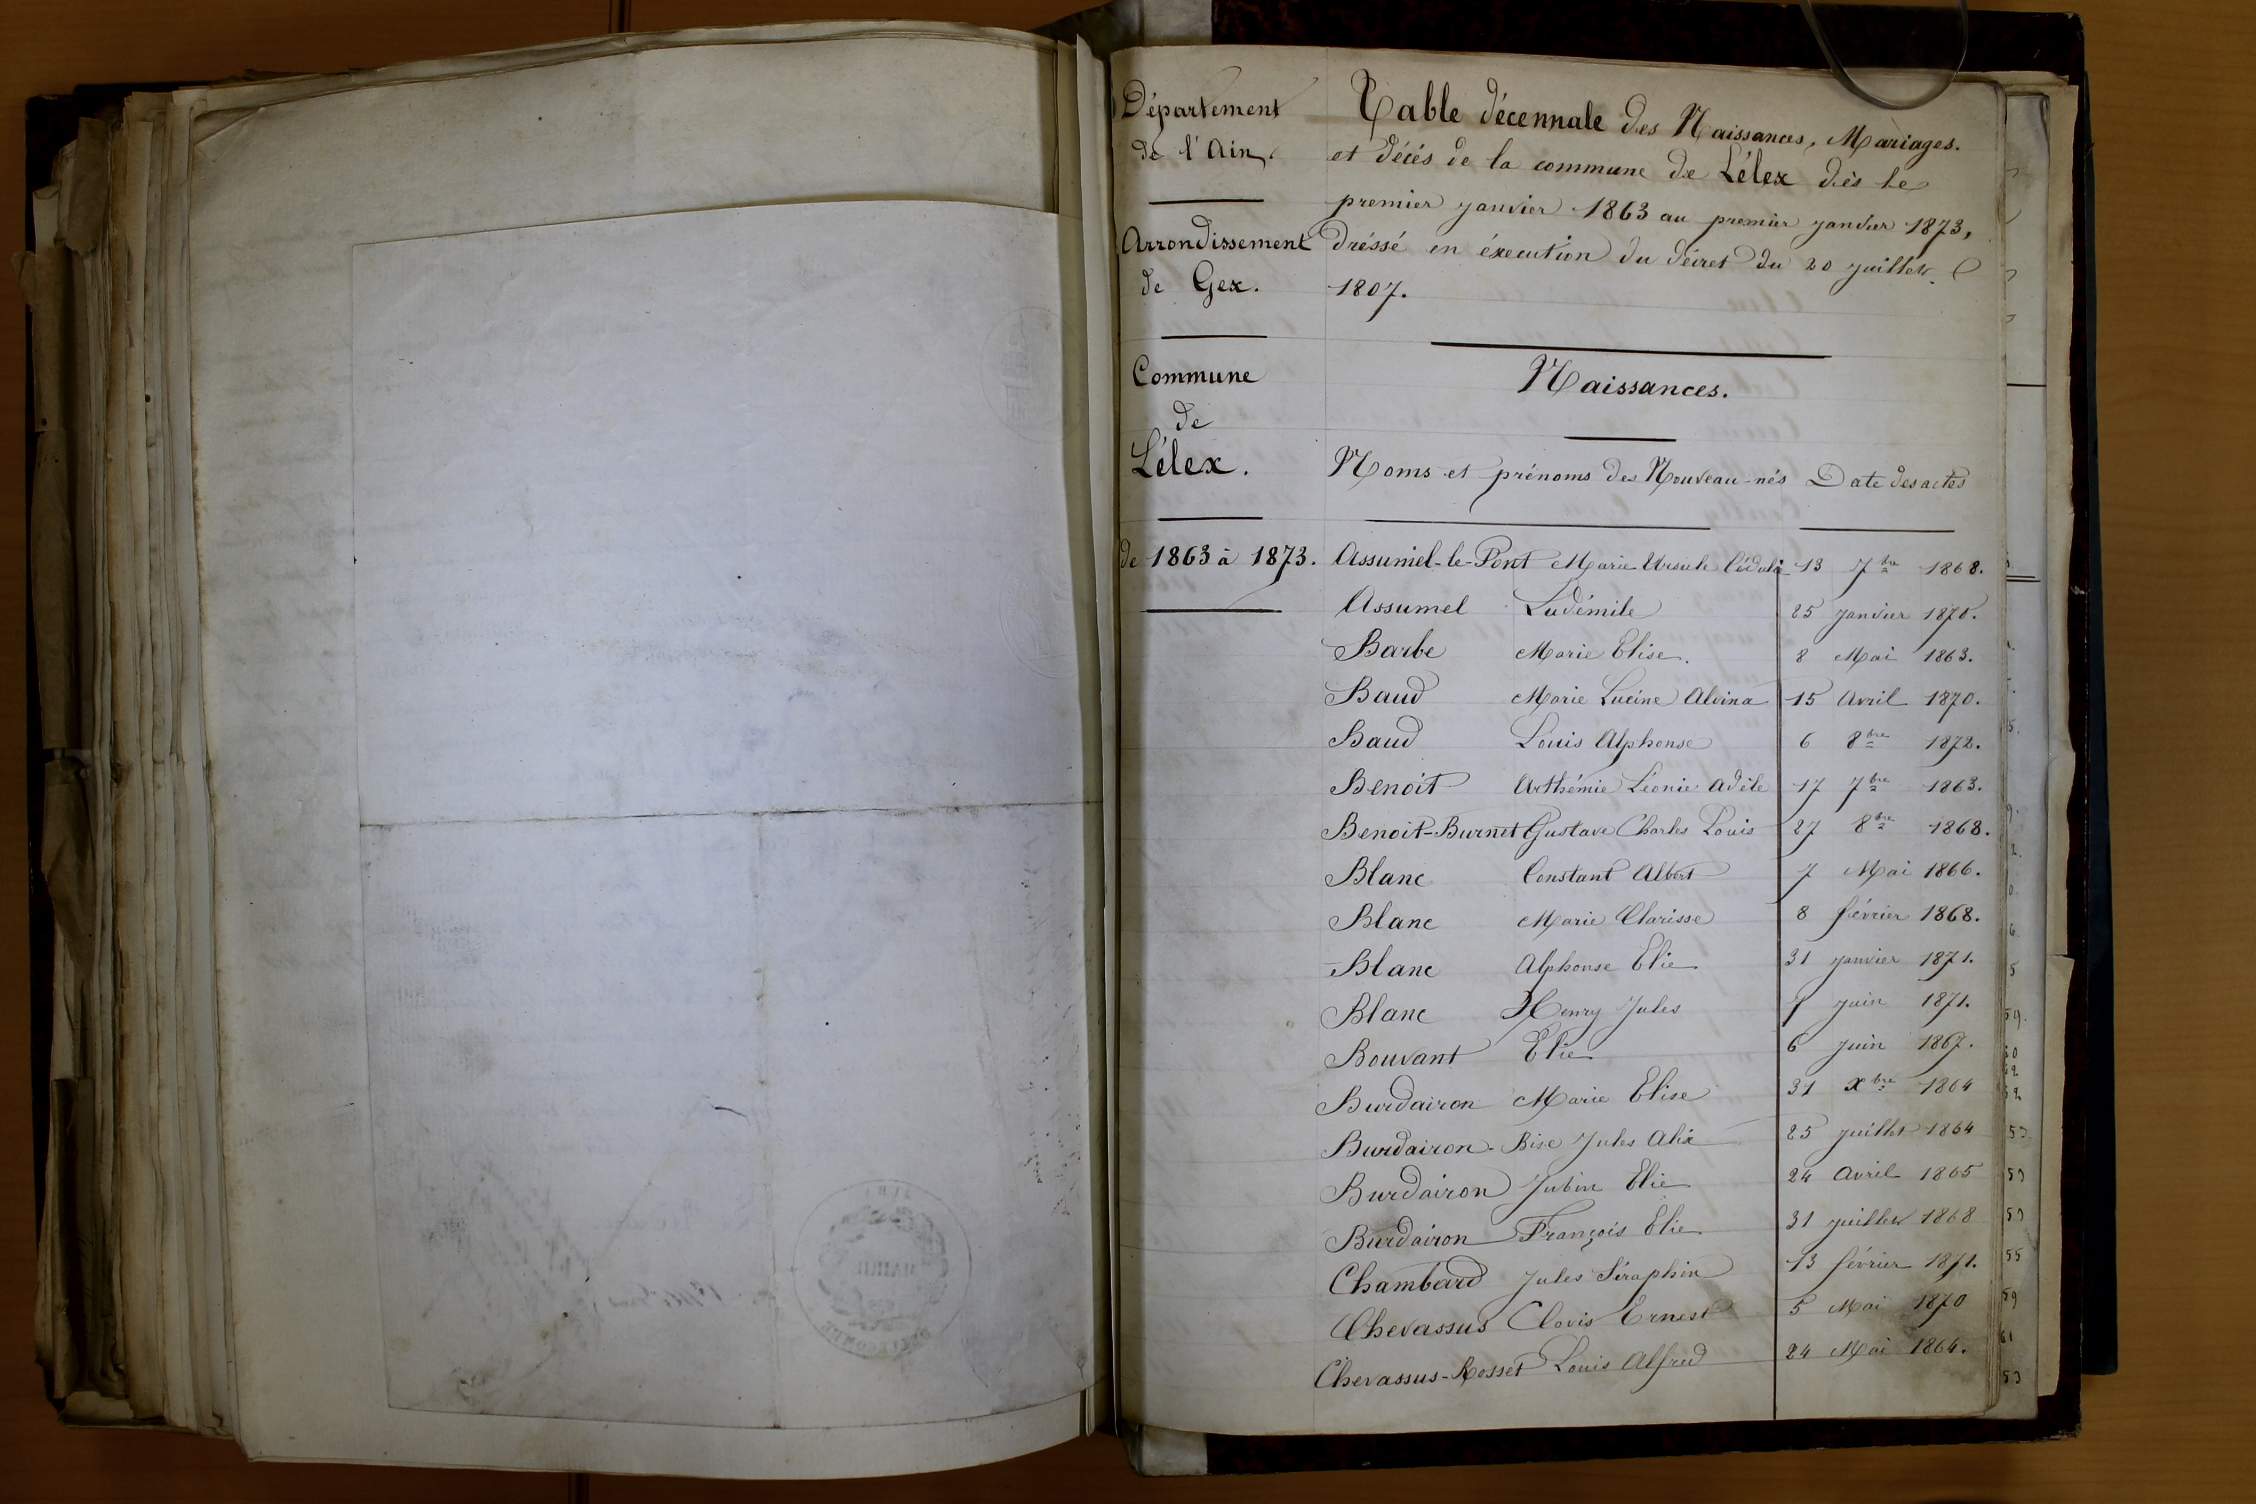 Département
de l'Ain.
Arrondissement
de Gex.
Commune
de
Lélex.
de 1863 à 1873.
Table décennale des Naissances, Mariages.
et décés de la commune de Lélex dès le
premier janvier 1863 au premier janvier 1873,
dréssé en éxecution du décret du 20 juillet
1807.
Naissances.
Noms et prénoms des Nouveau-nés Date des actes
Assumel-le-Pont Marie Ursule 13 7bre 1868.
Assumel Ludémile 25 janvier 1870.
Barbe Marie Elise. 8 Mai 1863.
Baud Marie Lucine Alvina 15 Avril 1870.
Baud Louis Alphonse 6 8bre 1872.
Benoit Arthémie Léonie Adèle 17 7bre 1863.
Benoit-Burnet Gustave Charles Louis 27 8bre 1868.
Blanc Constant Albert 7 Mai 1866.
Blanc Marie Clarisse 8 février 1868.
Blanc Alphonse Elie 31 janvier 1871.
Blanc Henry Jules juin 1871.
Bouvant Elie 6 juin 1867.
Burdairon Marie Elise 31 Xbre 1864
Burdairon-Bise Jules Alix 25 juillet 1864
Burdairon Jubin Elie 24 Avril 1865
Burdairon François Elie 31 juillet 1868
Chambard Jules Séraphin 13 février 1871.
Chevassus Clovis Ernest 5 Mai 1870
Chevassus-Rosset Louis Alfred 24 Mai 1864.
MAIRIE